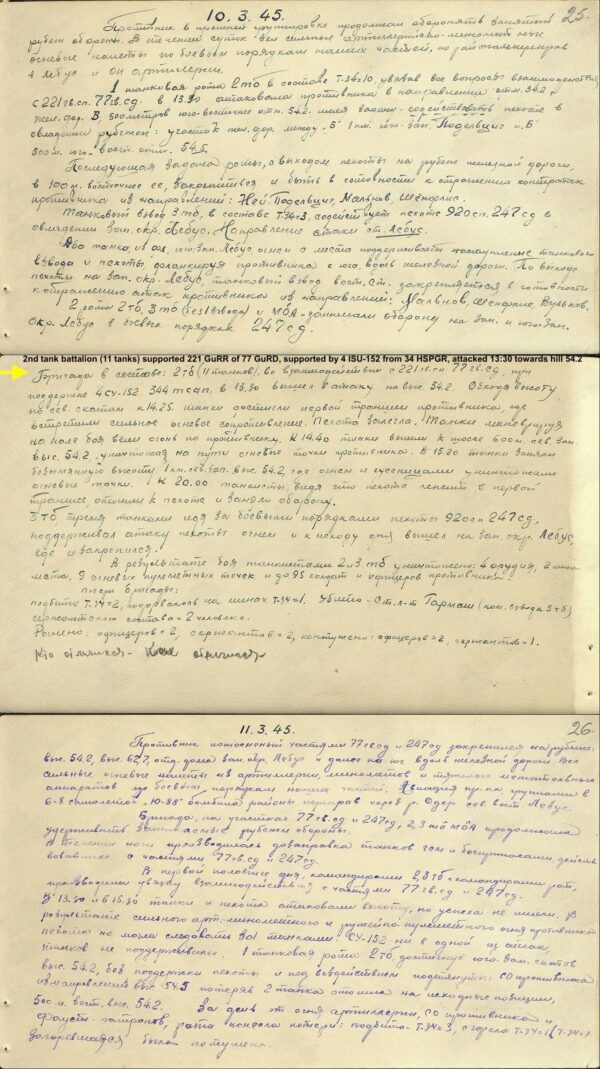 10.3.45.
25.
Противник в прежней группировке продолжал оборонять занятый
рубеж обороны. В течении суток вел сильные артиллерийско-минометные
огневые налеты по боевым порядкам наших частей, по
Лебус и
1 танковая рота 2тб в составе Т-34=10, увязав все вопросы взаимодействия
с 221гв.сп. 77гв.сд. в 13.30 атаковала противника в направлении отм. 54.2 и
жел. дор. Б. 500метров юго-восточнее отм. 54.2 имея задачи - содействовать пехоте в
овладении рубежом: участок жел. дор. между Б. 1 км. юго-зап. Подельциг и Б
500м. юго-вост. отм. 54.5.
Последующая задача роты, с выходом пехоты на рубеж железной дороги
в 100м. восточнее ее, закрепиться и быть в готовности к отражению контратак
противника из направлений: Ней Подельциг, Мальнов, Шенфлис.
Танковый взвод 3тб, в составе Т-34=3, содействует пехоте 920сп. 247сд в
овладении зап. окр. Лебус. Направление атаки от. Лебус.
Два танка, из юго-зап. Лебус огнем с места поддерживает танкового
взвода и пехоты, фланкируя противника с юга, вдоль железной дороги. По выходе
пехоты на зап. окр. Лебус, танковый взвод закрепляется в готовности
к отражению атак противника из направлений: Мальнов, Шенфлис, Вульков.
2 рота 2тб, 3тб (без 1 взвода) и МбА - занимали оборону на зап. и юго-зап.
окр. Лебус в боевых порядках 247сд.
2nd tank battalion (11 tanks) supported 221 GuRR of 77 GuRD, supported by 4 ISU-152 from 34 HSPGR, attacked 13:30 towards hill 54.2
Бригада в составе: 2тб (11 танков), во взаимодействии с 221гв.сп 77гв.сд, при
поддержке 4СУ-152 344тсап, в 13.30 вышел в атаку на выс. 54.2. Обходя высоту
по сев. скатам к 14.25 танки достигли первой траншеи противника, где
встретили сильное огневое сопротивление. Пехота залегла. Танки маневрируя
на поле боя вели огонь по противнику. К 14.40 танки вышли к шоссе 600м. сев. зап.
выс. 54.2. уничтожая на пути огневые точки противника. В 15.20 танки заняли
безымянную высоту 1 км. сев. зап. выс. 54.2, где огнем и гусеницами уничтожали
огневые точки. К 20.00 танкисты, видя что пехота лежит в первой
траншее, отошли к пехоте и заняли оборону.
3тб тремя танками идя за боевыми порядками пехоты 920сп 247сд,
поддерживал атаку пехоты огнем и к исходу дня вышел на зап. окр. Лебус,
где и закрепился.
В результате боя танкистами 2 и 3 тб уничтожено: 4 орудия, 2 мино-
мета, 9 огневых пулеметных точек и до 95 солдат и офицеров противника.
Потери бригады:
подбито Т-34=2, подорвалось на минах Т-34=1. Убито - Ст. л-т Гармаш (ком. взвода 3тб)
сержантского состава = 2 человека.
Ранено: офицеров = 2, сержантов = 2, контужено: офицеров = 2, сержантов - 1.
Кто отличился - Как отличился -
11.3.45.
26.
Противник потесненный частями 77гв.сд и 247сд закрепился на рубеже:
выс. 54.2, выс. 62.7, отд. дома зап. окр. Лебус и далее на юг вдоль железной дороги. Вел
сильные огневые налеты из артиллерии, минометов и тяжелых метательных
аппаратов по боевым порядкам наших частей. Авиация пр-ка группами в
6-8 самолетов "Ю-88" бомбила районы переправ через р. Одер сев. вост. Лебус.
Бригада, на участках 77гв.сд и 247сд, 2,3тб МбА продолжала
удерживать занимаемые рубежи обороны.
В течении ночи производилась дозаправка танков гсм и боеприпасами
с частями 77гв.сд и 247сд.
В первой половине дня, командирами 2,3тб и командирами рот,
производили увязку взаимодействия с частями 77гв.сд и 247сд.
В 13.30 и в 15.30 танки и пехота атаковали высоту, но успеха не имели. В
результате сильного арт. минометного и ружейно-пулеметного огня противника
пехота не могла следовать за танками. СУ-152 ни в одной из атак,
танков не поддерживали. 1 танковая рота 2тб, достигнув юго-зап. скатов
выс. 54.2, без поддержки пехоты и под воздействием СО противника
из направления выс. 54.5 потеряв 2 танка отошла на исходные позиции,
500м. вост. выс. 54.2. За день от огня артиллерии, СО противника и
фауст-патронов, рота понесла потери: подбито Т-34=3, сгорело Т-34=1 (Т-34=1
загоревшаяся была потушена.